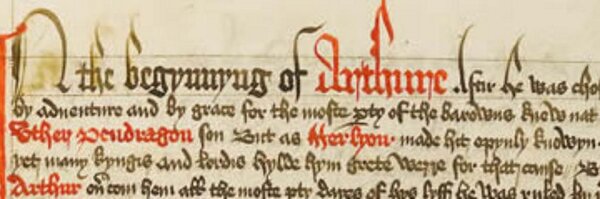 In the begynnyng of Arthure . Aftir he was chos
by aduenture and by grace for the moste pty of the barowns knew nat
Vther Pendragon son But as Merlyon made hit opynly knowyn
yet many kyngis and lordis hylde hym grete werre for that cause B
Arthur on com hem all the moste pty dayes of hys lyff he was ruled by